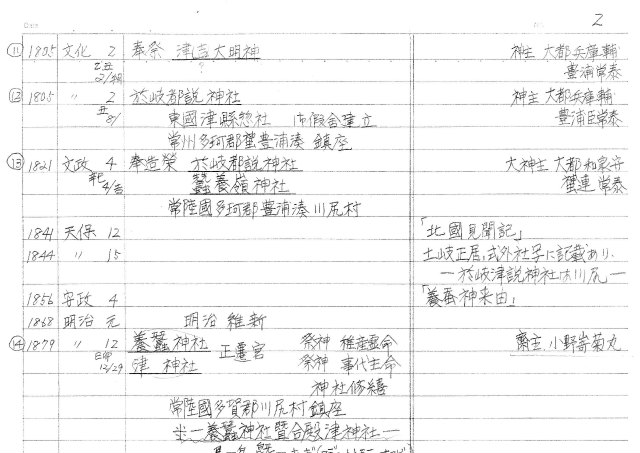 2
⑪ 1805 文化 2 奉祭 津吉大明神 神主 大都兵庫輔
乙丑 豊浦常泰
⑫ 1805 〃 2 於岐都説神社 神主 大都兵庫輔
丑 8/ 東國津縣惣社 市假舎建立 豊浦臣常泰
常州多珂郡蜑豊浦湊 鎮座
⑬ 1821 文政 4 奉造榮 於岐都説神社 大神主 大都和泉守
4/吉 蠶養嶺神社 常泰
常陸國多珂郡豊浦湊川尻村
1841 天保 12 「北國見聞記」
1844 〃 15 土岐正居,式外社字に記載あり.
―於岐津説神社は川尻―
1856 安政 4 「養蚕神来由」
1868 明治 元 明治維新
⑭ 1879 〃 12 養蠶神社 正遷宮 祭神 稚産霊命 齋主 小野嵜菊丸
12/29 津 神社 祭神 事代主命
神社修繕
常陸國多賀郡川尻村鎮座
―養蠶神社暨合殿津神社―